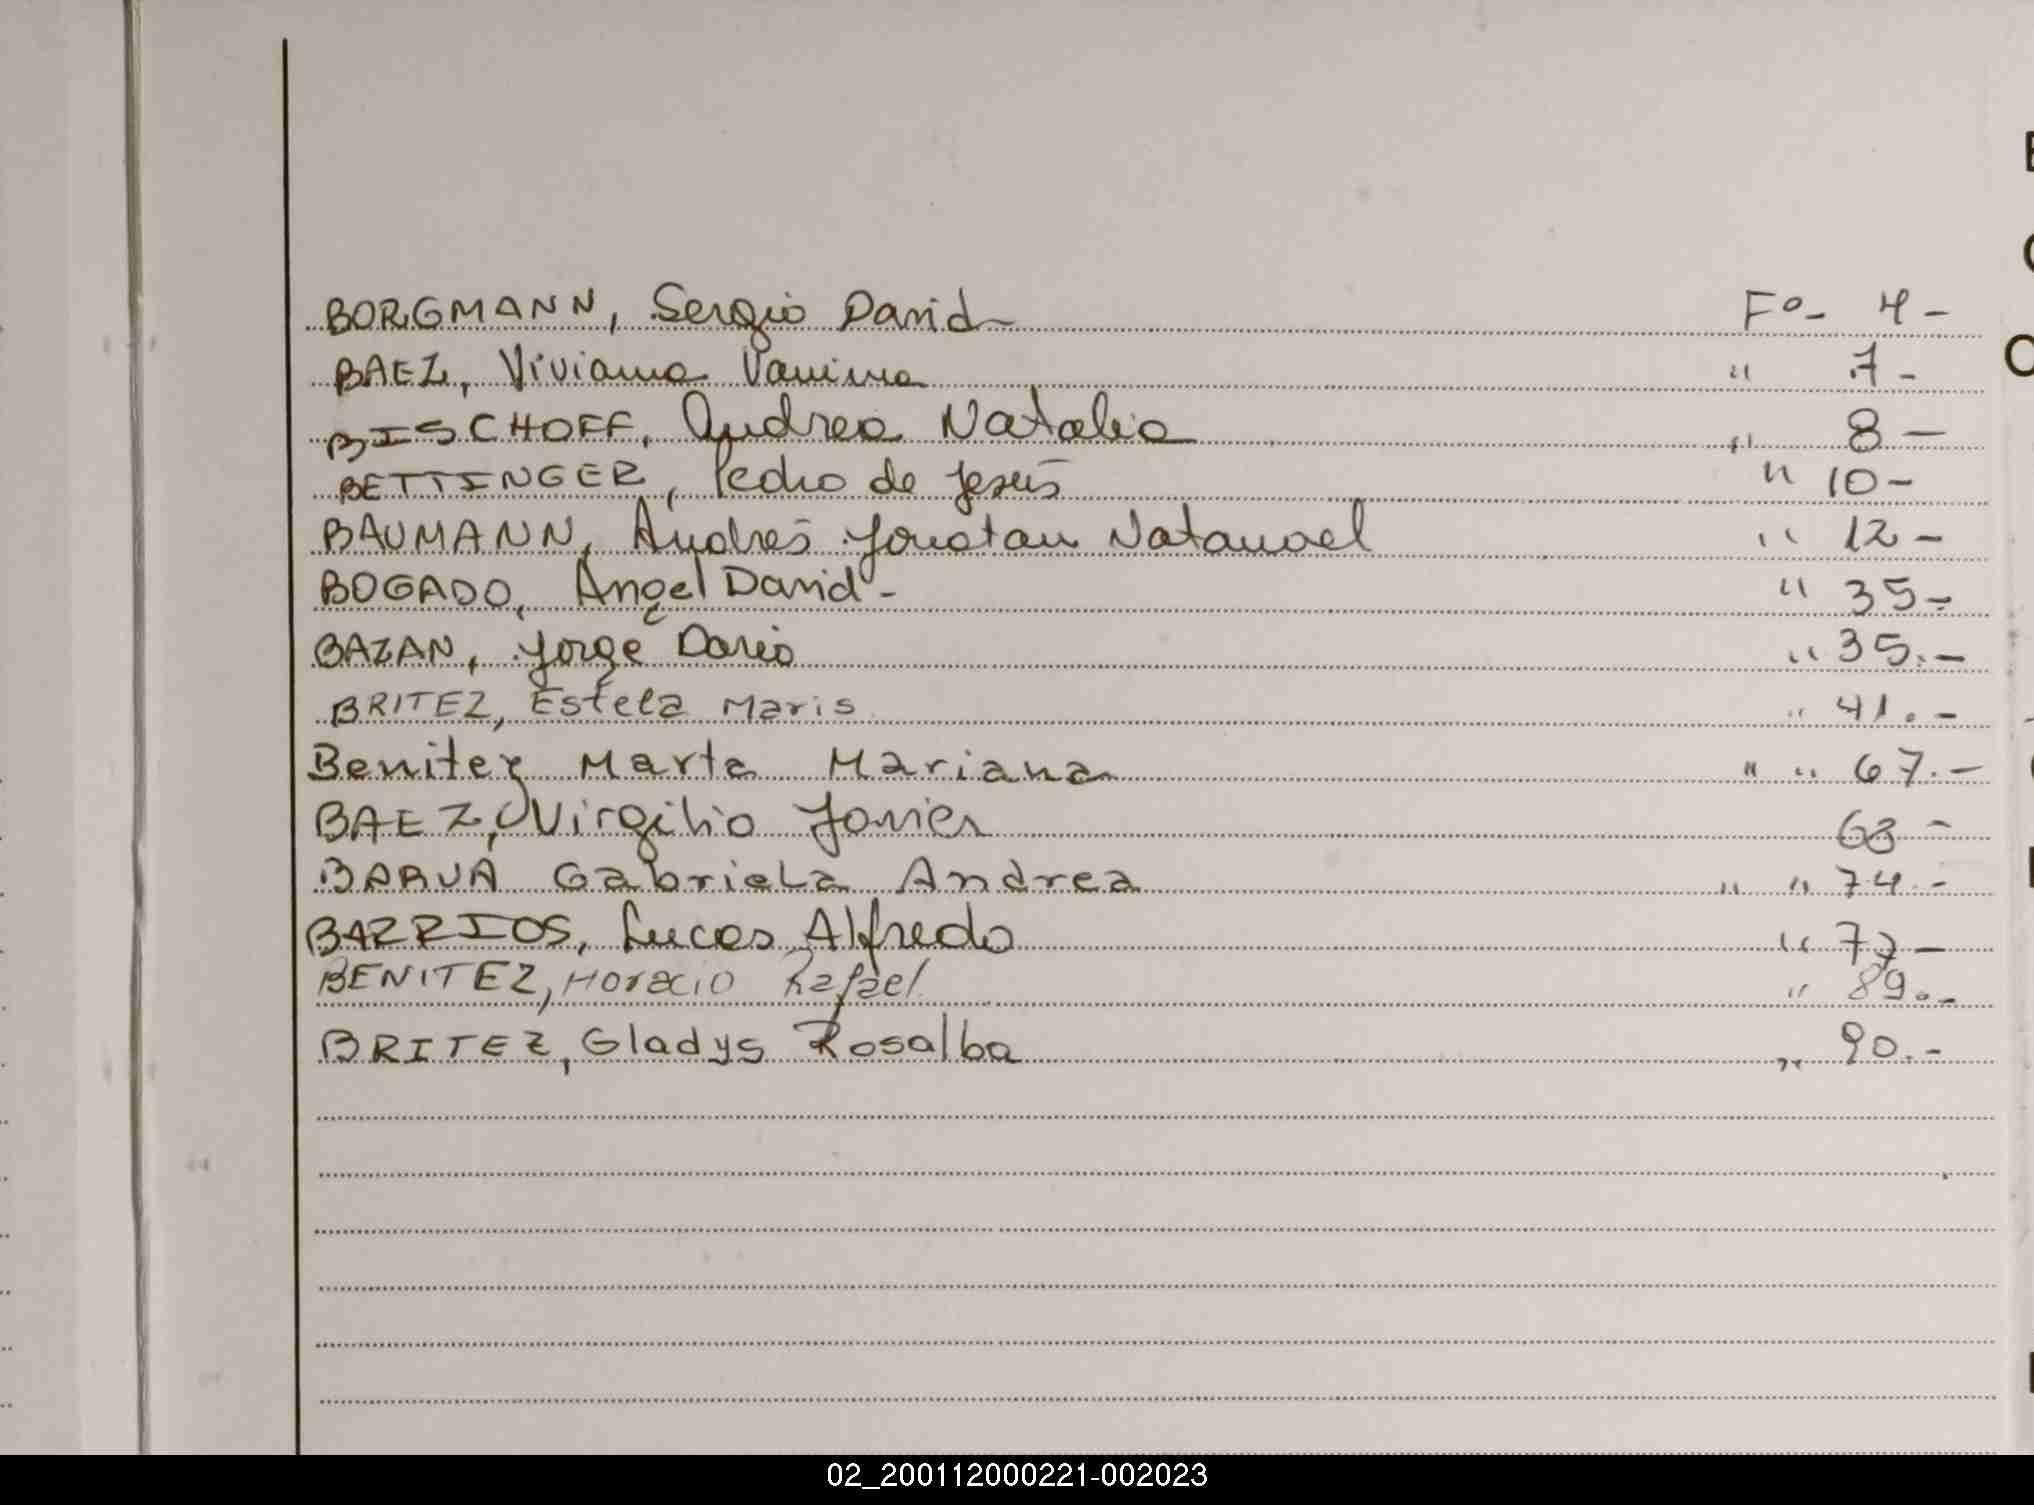 BORGMANN, Sergio David - Fº- 4 -
BAEZ, Viviana Vanina " 7 -
BISCHOFF, Andrea Natalia " 8 -
BETTINGER, Pedro de Jesús " 10 -
BAUMANN, Andrés Jonatan Natanael " 12 -
BOGADO, Angel David - " 35 -
BAZAN, Jorge Dario " 35.-
BRITEZ, Estela Maris " 41.-
Benitez Marta Mariana " " 67.-
BAEZ, Virgilio Javier 68 -
BARUA Gabriela Andrea " " 74.-
BARRIOS, Lucas Alfredo " 77 -
BENITEZ, Horacio Rafael " 89.-
BRITEZ, Gladys Rosalba " 90.-
02_200112000221-002023